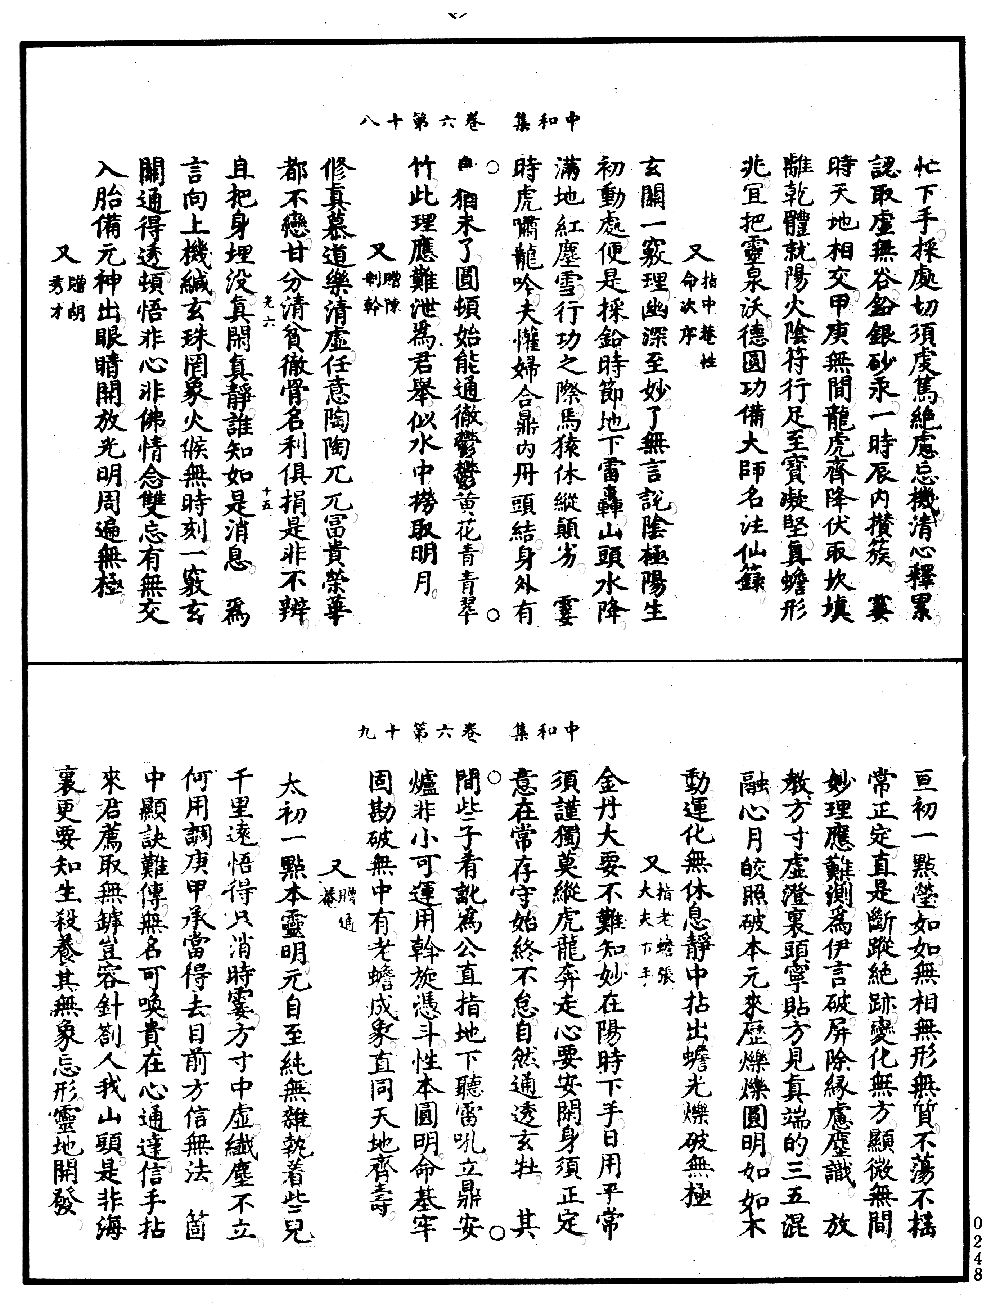 中和集　卷六第十八
忙下手採處切須虔篤絕慮忘機清心釋累
認取虛無谷鉛銀砂汞一時辰內攢簇　霎
時天地相交甲庚無間龍虎齊降伏取坎填
離乾體就陽火陰符行足至寶凝堅真蟾形
兆宜把靈泉沃德圓功備大師名注仙籙
又指中菴性命次序
玄關一竅理幽深至妙了無言說陰極陽生
初動處便是採鉛時節地下雷轟山頭水降
滿地紅塵雪行功之際馬猿休縱顛劣　霎
時虎嘯龍吟夫懽婦合鼎內丹頭結身外有
猶未了圓頓始能通徹鬱鬱黃花青青翠
竹此理應難泄為君舉似水中撈取明月
又贈陳制幹
修真慕道樂清虛任意陶陶兀兀富貴榮華
都不戀甘分清貧徹骨名利俱捐是非不辨
光六　十五
且把身埋没真閑真靜誰知如是消息　為
言向上機緘玄珠罔象火候無時刻一竅玄
關通得透頓悟非心非佛情念雙忘有無交
入胎備元神出眼睛開放光明周遍無極
又贈胡秀才
中和集　卷六第十九
亘初一點瑩如如無相無形無質不蕩不搖
常正定直是斷蹤絕跡變化無方顯微無間
妙理應難測為伊言破屏除緣慮塵識　放
教方寸虛澄裏頭寧貼方見真端的三五混
融心月皎照破本元來歷爍爍圓明如如不
動運化無休息靜中拈出蟾光爍破無極
又指老蟾張大夫下手
金丹大要不難知妙在陽時下手日用平常
須謹獨莫縱虎龍奔走心要安閑身須正定
意在常存守始終不怠自然通透玄牡　其
間些子肴訛為公直指地下聽雷吼立鼎安
爐非小可運用斡旋憑斗性本圓明命基牢
固勘破無中有老蟾成象直同天地齊壽
又贈通菴
太初一點本靈明元自至純無雜執着些兒
千里遠悟得只消時霎方寸中虛纖塵不立
何用調庚甲承當得去目前方信無法　箇
中顯訣難傳無名可喚貴在心通達信手拈
來君薦取無罅豈容針劄人我山頭是非海
裏更要知生殺養其無象忘形靈地開發
0248